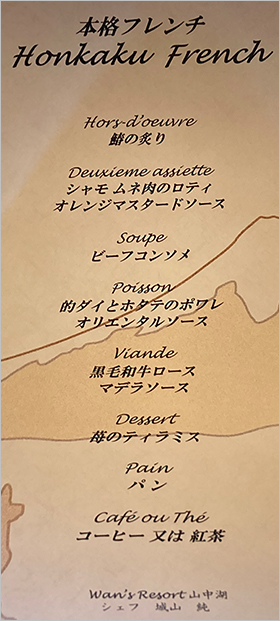 本格フレンチ
Honkaku French
Hors-d'oeuvre
鰆の炙り
Deuxieme assiette
シャモ ムネ肉のロティ
オレンジマスタードソース
Soupe
ビーフコンソメ
Poisson
的ダイとホタテのポワレ
オリエンタルソース
Viande
黒毛和牛ロース
マデラソース
Dessert
苺のティラミス
Pain
パン
Café ou Thé
コーヒー 又は 紅茶
Wan's Resort 山中湖
シェフ 城山 純